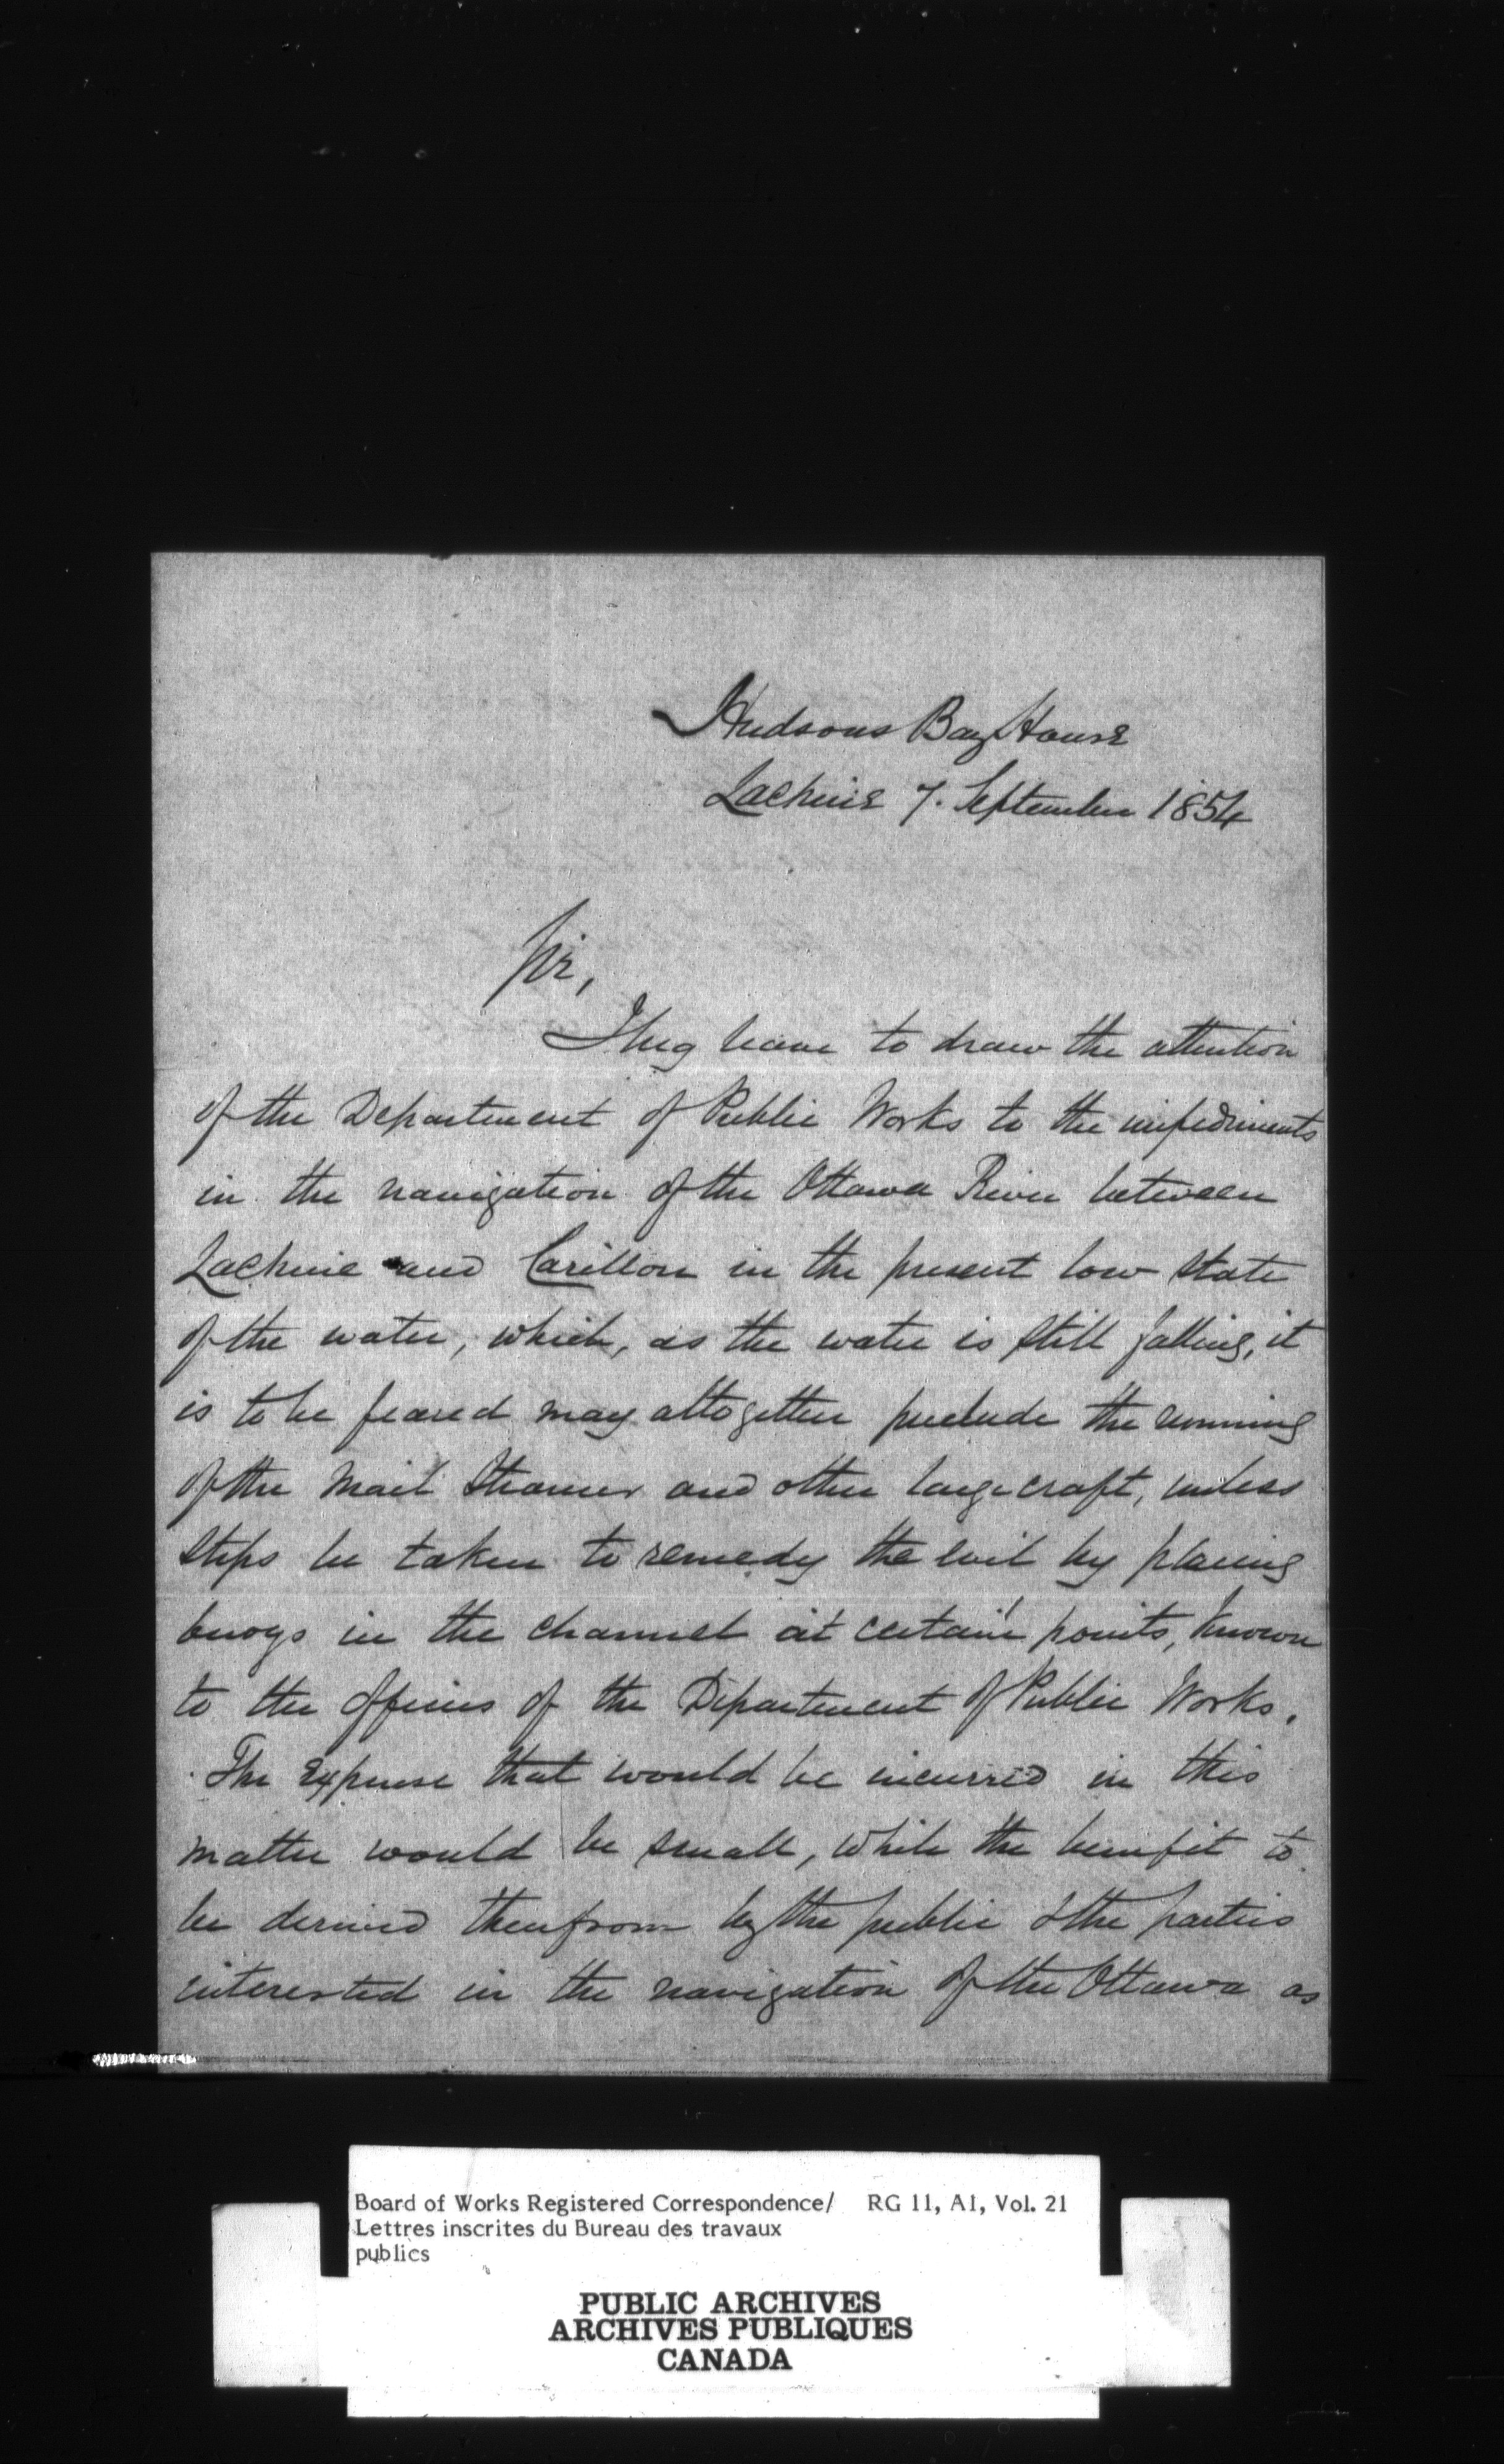 Hudsons Bay House
Lachine 7. September 1854
Sir,
I beg leave to draw the attention
of the Department of Public Works to the impediments
in the navigation of the Ottawa River between
Lachine and Carillon in the present low state
of the water, which, as the water is still falling, it
is to be feared may altogether preclude the running
of the Mail Steamer and other large craft, unless
steps be taken to remedy the evil by placing
buoys in the channel at certain points, known
to the Officers of the Department of Public Works.
The Expense that would be incurred in this
matter would be small, while the benefit to
be derived therefrom by the public & the parties
interested in the navigation of the Ottawa as
Board of Works Registered Correspondence/ RG 11, A1, Vol. 21
Lettres inscrites du Bureau des travaux
publics
PUBLIC ARCHIVES
ARCHIVES PUBLIQUES
CANADA